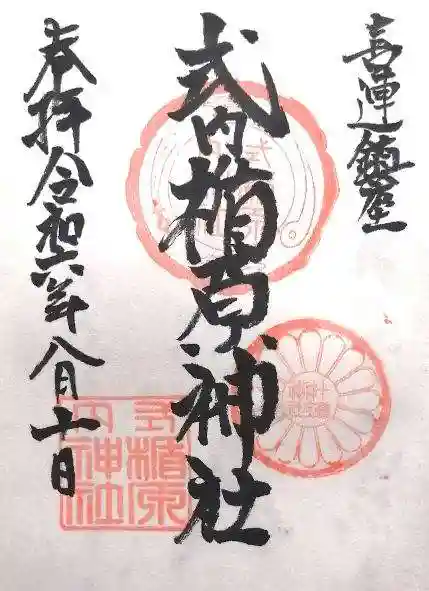 喜連鎮座
式内楯原神社
奉拝令和六年八月十日
式楯原
内神社